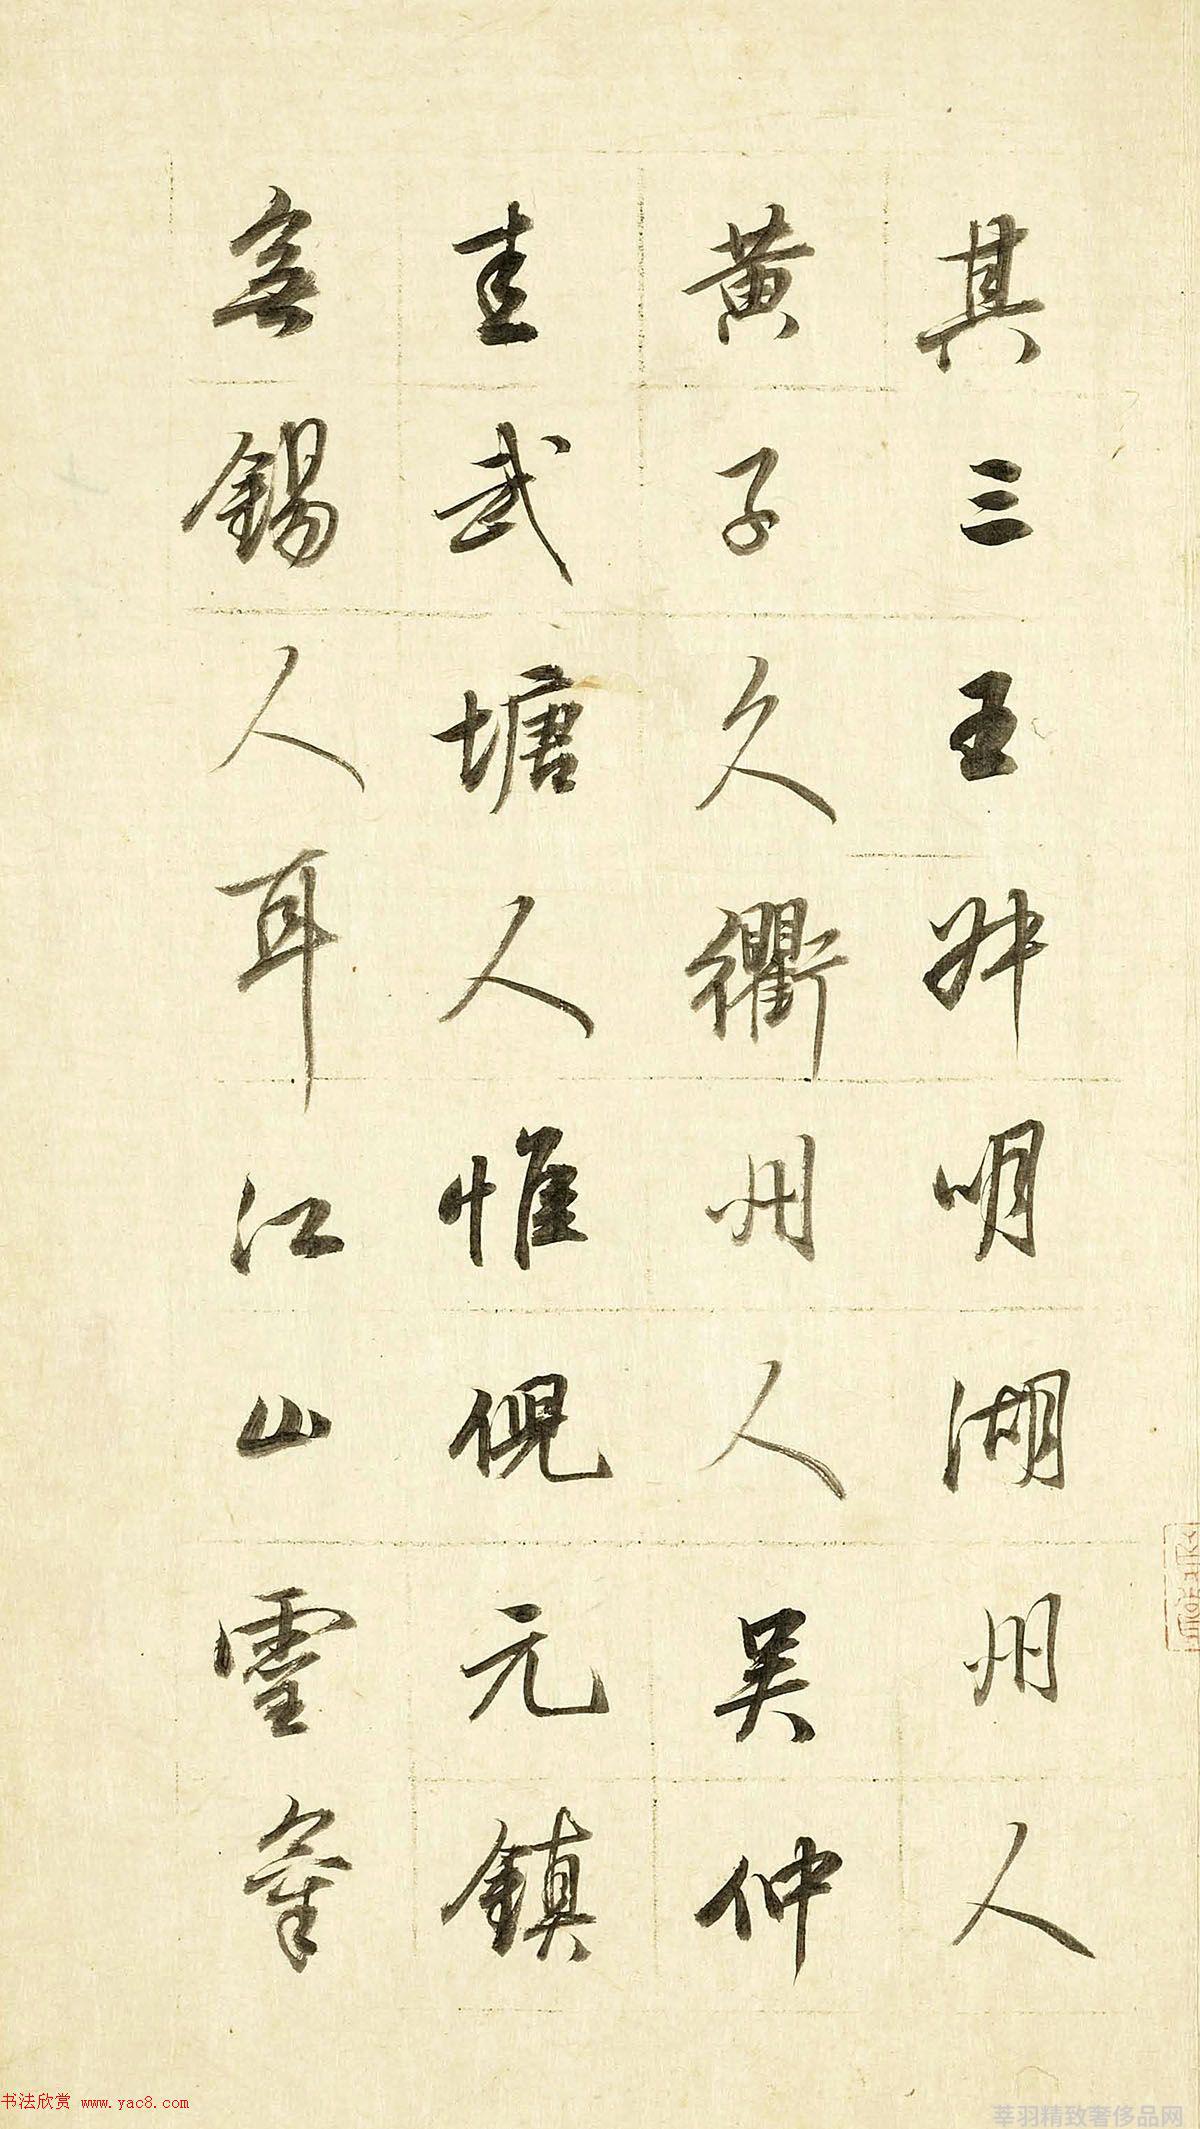 其三王叔明湖州人
黄子久衢州人吴仲
圭武塘人惟倪元鎮
無錫人耳江山靈氣
书法欣赏 www.yac8.com
莘羽精致奢侈品网